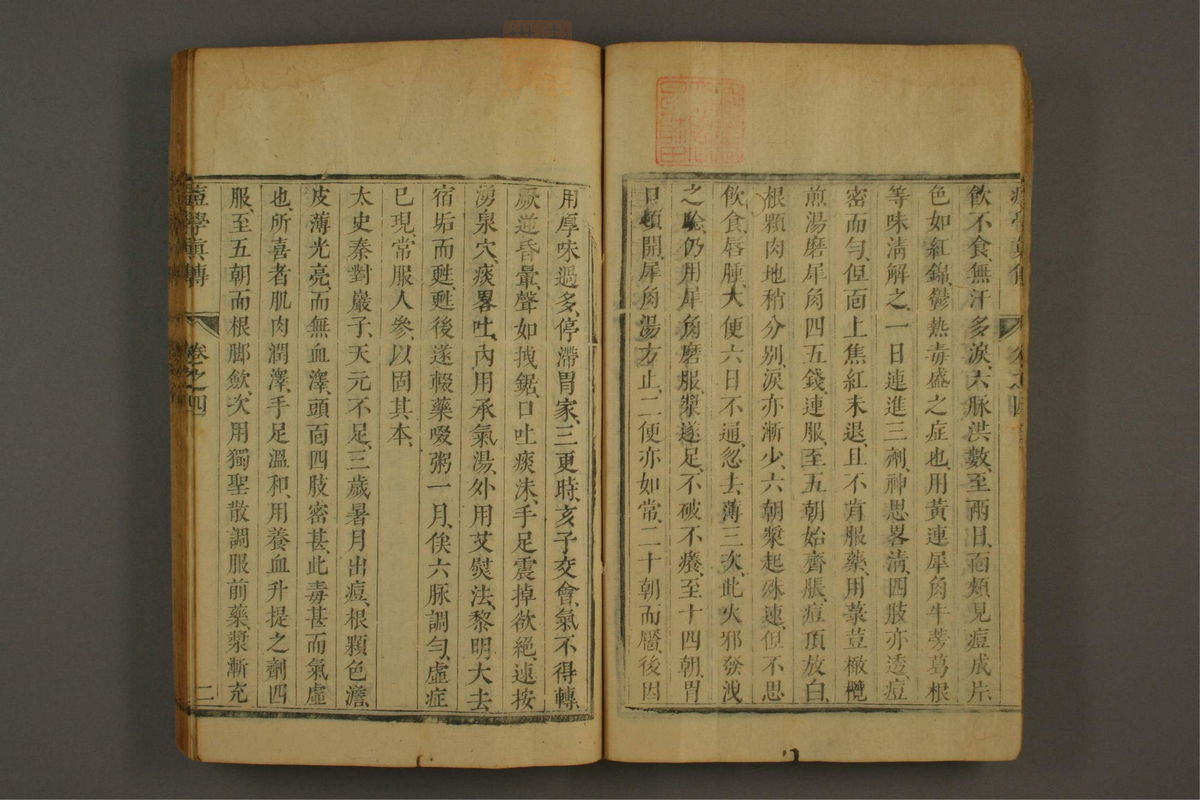 飲不食無汗多淚六脉洪數至兩日面頰見痘成片
色如紅錦鬱熱毒盛之症也用黃連犀角牛蒡葛根
等味淸解之一日連進三劑神思畧淸四肢亦透痘
密而勻但面上焦紅未退且不肯服藥用菉荳橄欖
煎湯磨犀角四五錢連服至五朝始齊脹痘頂放白
根顆肉地稍分別淚亦漸少六朝漿起殊速但不思
飲食唇腫大便六日不通忽去薄三次此火邪發洩
之驗仍用犀角磨服漿遂足不破不癢至十四朝胃
口頓開犀角湯方止二便亦如常二十朝而靨後因
用厚味過多停滯胃家三更時亥子交會氣不得轉
厥逆昏暈聲如拽鋸口吐痰沫手足震掉欲絕速按
湧泉穴痰畧吐內用承氣湯外用艾熨法黎明大去
宿垢而甦甦後遂輟藥啜粥一月俟六脉調勻虛症
已現常服人參以固其本
太史秦對巖子天元不足三歲暑月出痘根顆色澹
皮薄光亮而無血澤頭面四肢密甚此毒甚而氣虛
也所喜者肌肉潤澤手足溫和用養血升提之劑四
服至五朝而根脚歛次用獨聖散調服前藥漿漸充
痘學眞傳 卷之四 二